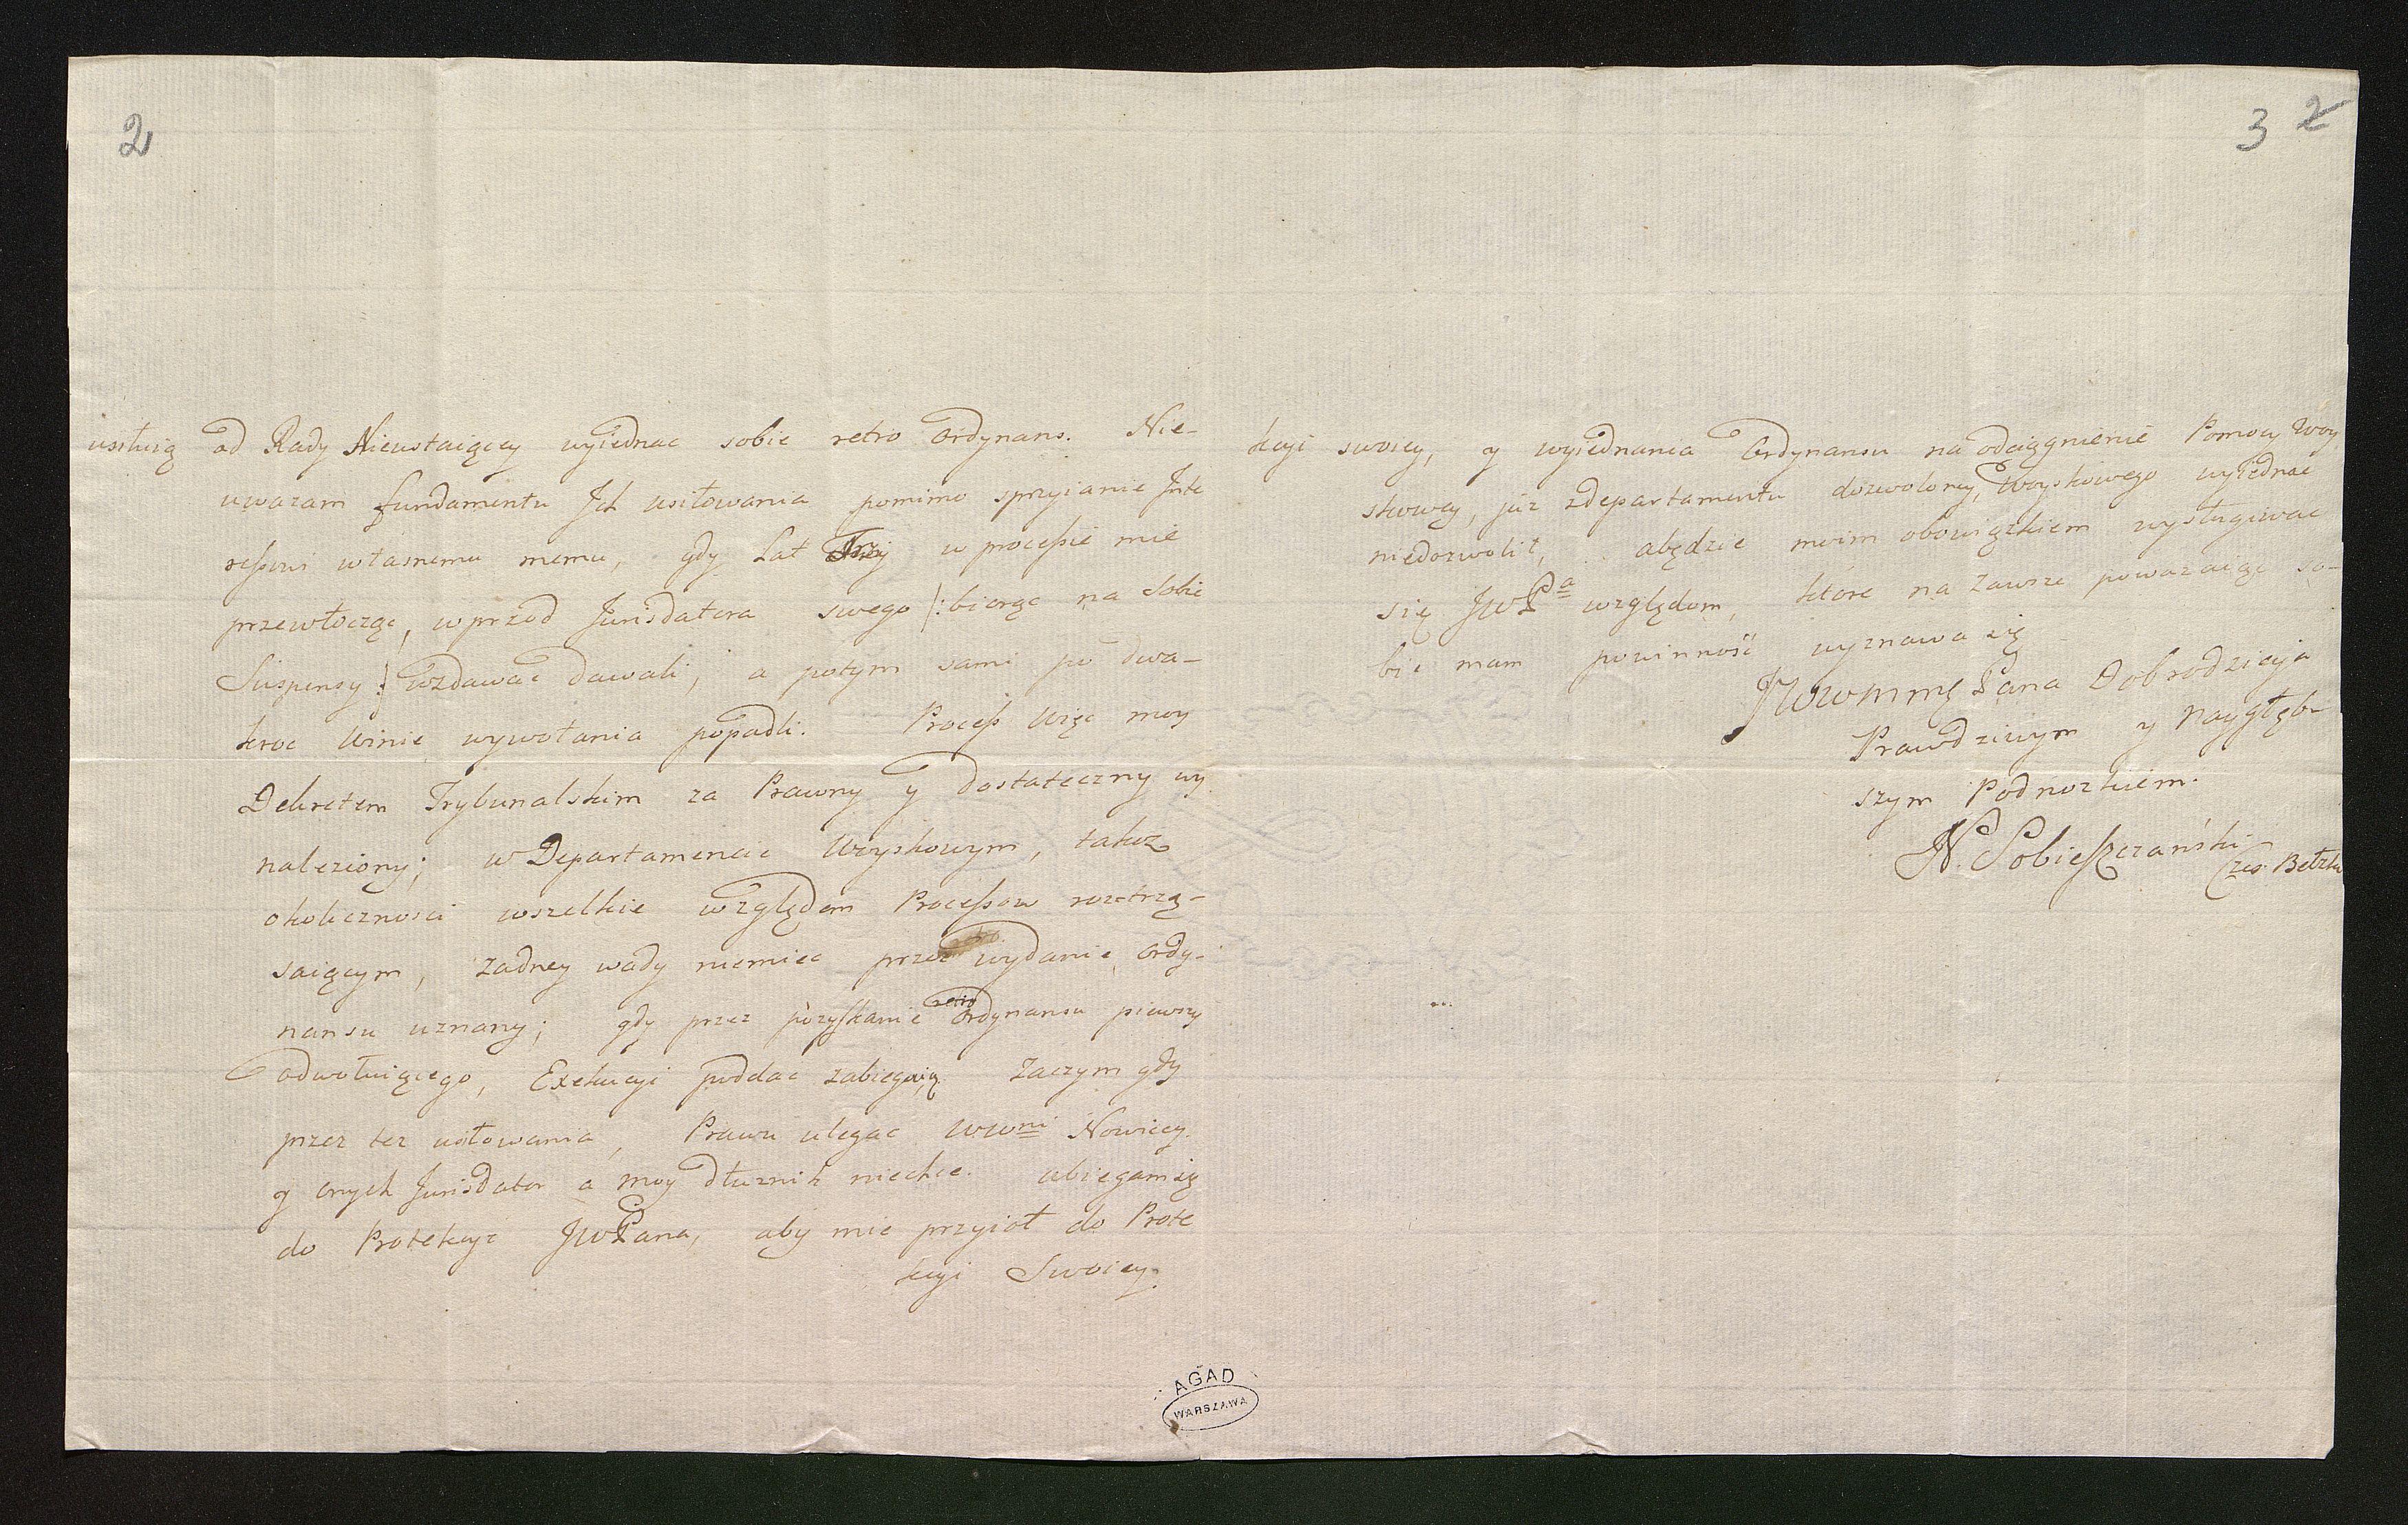 2
usiłuią od Rady Nieustaiącey wyiednac sobie retro ordynans. Nie-
uwazam fundamentu Ich usiłowania pomimo sprzyianie Inte
ressowi własnemu memu, gdy Lat Trzy w processie mie
przewłocząc, wprzod Jurisdatora swego /: biorąc na Sobie
Suspensy :/ wzdawać dawali, a potym sami po dwa-
kroc Winie wywołania popadli. Process więc moy
Dekretem Trybunalskim za Prawny y dostateczny wy
naleziony; w Departamencie Woyskowym, także
okolicznosci wszelkie względem Processow roztrzą-
saiącym, zadney wady niemiec przez wydanie ordy-
nansu uznany; gdy przez pozyskanie retro ordynansu pierwszy
odwołuiącego, Exekucyi poddac zabiegaią. Zaczym gdy
przez tez usiłowania, Prawu ulegac WWni Nowiccy
y onych Jurisdator a moy dłuznik niechce. ubiegam się
do Protekcyi JWPana, aby mie przyioł do Prote
kcyi Swoiey.
3 2
kcyi swoiey, y wyiednania Ordynansu na odciągnienie Pomocy Woy
skowey, juz zdepartamentu dozwoloney, Woyskowego wyiednac
niedozwolił, abędzie moim obowiązkiem wysługiwac
się JWPa względom, ktore na zawsze powazaiąc so-
bie mam powinność wyznawa się
JWWmmę Pana Dobrodzieja
Prawdziwym y Naygłęb-
szym Podnozkiem.
N. Sobieszczański
Czes. Bełzki
AGAD
WARSZAWA